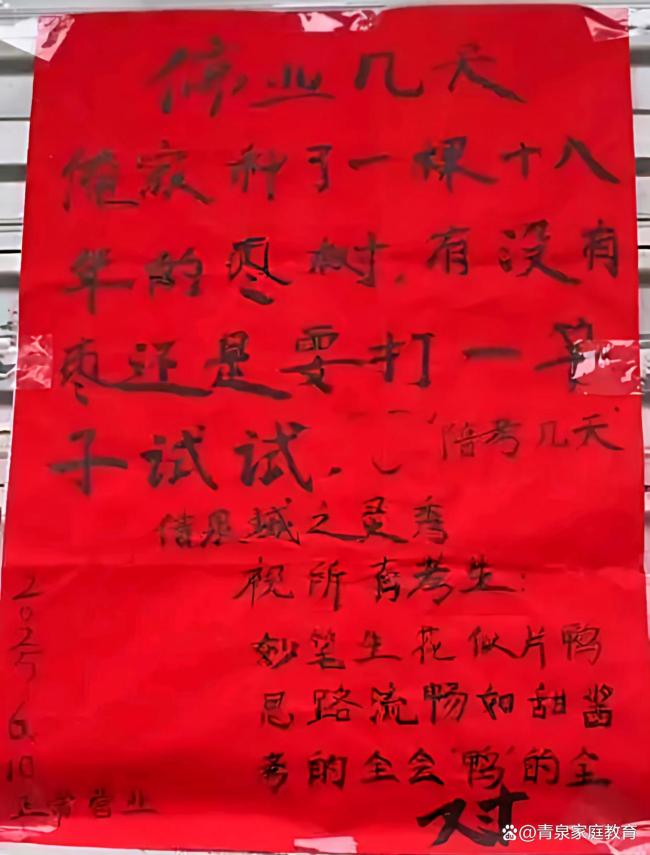 停业几天
俺家种了一棵十八
年的枣树.有没有
枣还是要打一竿
子试试.
"陪考几天"
借泉城之灵秀
祝所有考生:
妙笔生花似片鸭
思路流畅如甜酱
考的全会"鸭"的全
对
2025.6.10
正常营业
@青泉家庭教育